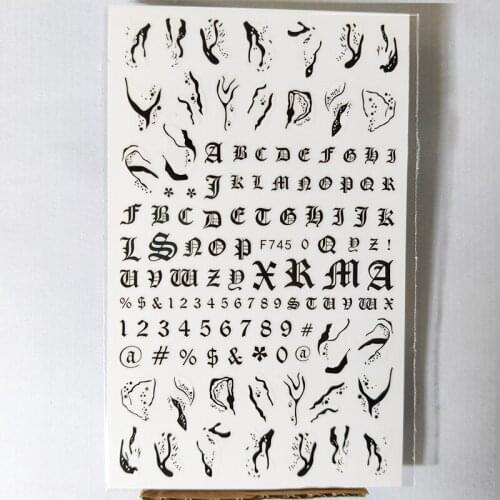 A B C D E F G H I
* * J K L M N O P Q R
F B C D E T G H I J K
L S N O P F745 O Q Y Z !
U V W Z Y X R M A
% $ & 1 2 3 4 5 6 7 8 9 S T U V W X
1 2 3 4 5 6 7 8 9 #
@ # % $ & * 0 @